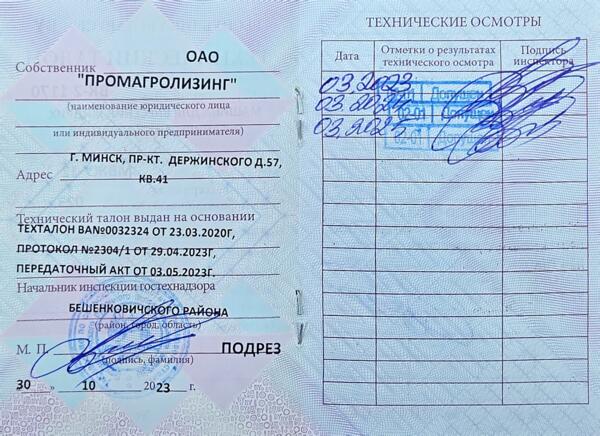 Собственник ОАО
"ПРОМАГРОЛИЗИНГ"
(наименование юридического лица
или индивидуального предпринимателя)
Г. МИНСК, ПР-КТ. ДЕРЖИНСКОГО Д.57,
Адрес КВ.41
Технический талон выдан на основании
ТЕХТАЛОН ВА№0032324 ОТ 23.03.2020Г,
ПРОТОКОЛ №2304/1 ОТ 29.04.2023Г,
ПЕРЕДАТОЧНЫЙ АКТ ОТ 03.05.2023Г.
Начальник инспекции гостехнадзора
БЕШЕНКОВИЧСКОГО РАЙОНА
(район, город, область)
М. П. ПОДРЕЗ
(подпись, фамилия)
30 » 10 2023 г.
ТЕХНИЧЕСКИЕ ОСМОТРЫ
Дата
Отметки о результатах технического осмотра
Подпись инспектора
03.2023 02-01 Допущен
03.2024 02-01 Допущен
03.2025 02-01 Допущен